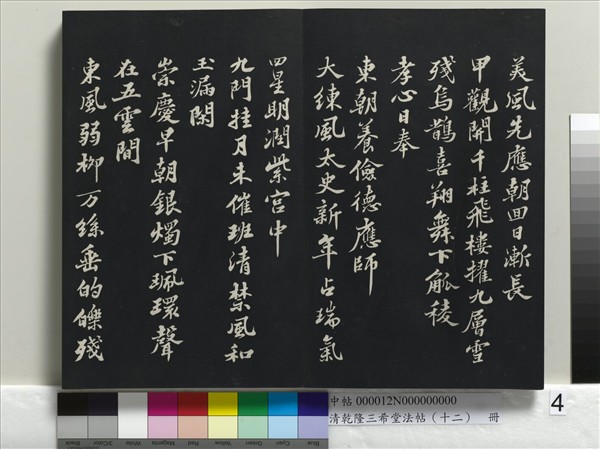 羙風先應朝回日漸長
甲觀開千柱飛樓擢九層雪
殘烏鵲喜翔舞下觚稜
孝心日奉
東朝養儉德應師
大練風太史新年占瑞氣
四星明潤紫宮中
九門挂月未催班清禁風和
玉漏閑
崇慶早朝銀燭下珮環聲
在五雲間
東風弱柳万絲垂的皪殘
中帖 000012N000000000
清乾隆三希堂法帖（十二） 冊
4
Blue Cyan Green Yellow Red Magenta White 3/Color Black